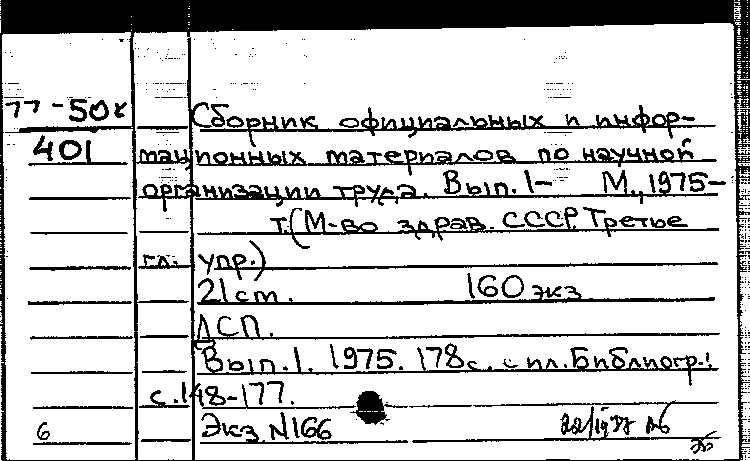 77-50к
401
Сборник официальных и инфор-
мационных материалов по научной
организации труда. Вып. 1-    М., 1975-
т. (М-во здрав. СССР. Третье
гл. упр.)
21 cm.    160 экз
ДСП.
Вып. 1. 1975. 178 с. с ил. Библиогр.:
с. 148-177.
6    Экз N166